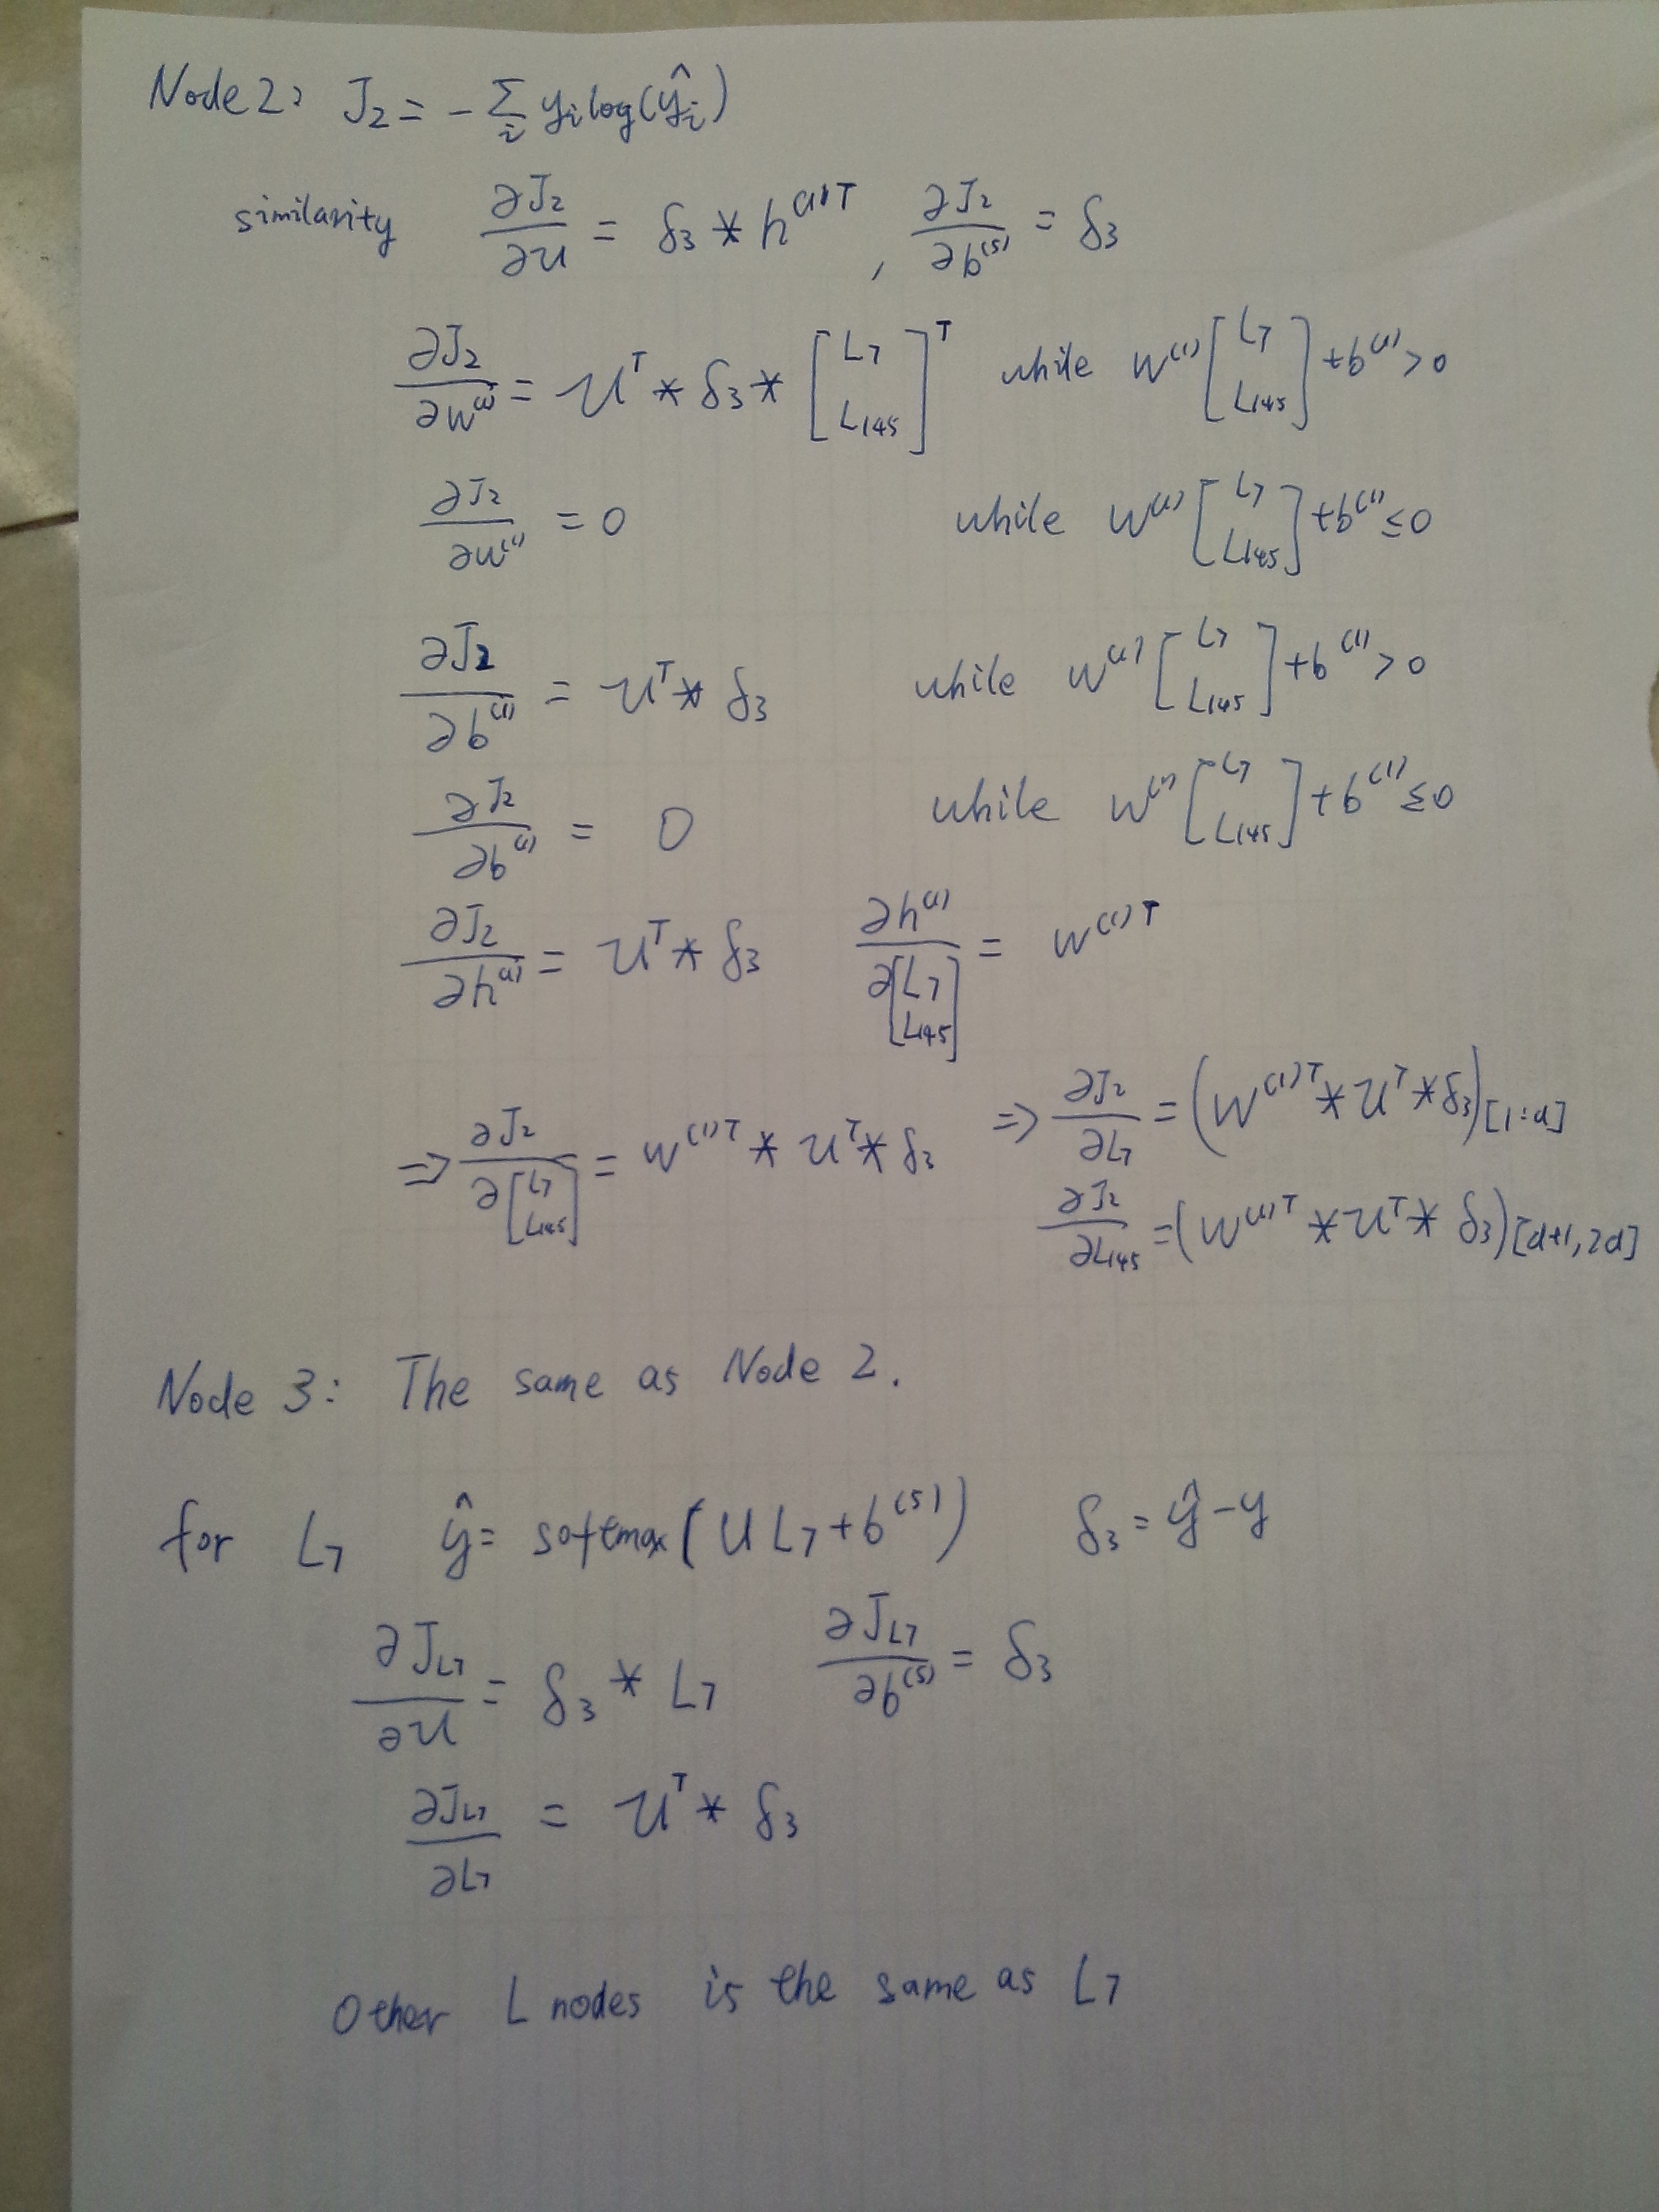 Node 2: J₂ = -∑ᵢ yᵢ log(ŷᵢ)
similarity ∂J₂/∂U = δ₃ * h⁽¹⁾ᵀ , ∂J₂/∂b⁽⁵⁾ = δ₃
∂J₂/∂W⁽¹⁾ = Uᵀ * δ₃ * [L₇ L₁₄₅]ᵀ while W⁽¹⁾[L₇ L₁₄₅] + b⁽¹⁾ > 0
∂J₂/∂W⁽¹⁾ = 0 while W⁽¹⁾[L₇ L₁₄₅] + b⁽¹⁾ ≤ 0
∂J₂/∂b⁽¹⁾ = Uᵀ * δ₃ while W⁽¹⁾[L₇ L₁₄₅] + b⁽¹⁾ > 0
∂J₂/∂b⁽¹⁾ = 0 while W⁽¹⁾[L₇ L₁₄₅] + b⁽¹⁾ ≤ 0
∂J₂/∂h⁽¹⁾ = Uᵀ * δ₃ ∂h⁽¹⁾/∂[L₇ L₁₄₅] = W⁽¹⁾ᵀ
⇒ ∂J₂/∂[L₇ L₁₄₅] = W⁽¹⁾ᵀ * Uᵀ * δ₃ ⇒ ∂J₂/∂L₇ = (W⁽¹⁾ᵀ * Uᵀ * δ₃)[1:d]
∂J₂/∂L₁₄₅ = (W⁽¹⁾ᵀ * Uᵀ * δ₃)[d+1, 2d]
Node 3: The same as Node 2.
for L₇ ŷ = softmax(U L₇ + b⁽⁵⁾) δ₃ = ŷ - y
∂J_L₇/∂U = δ₃ * L₇ ∂J_L₇/∂b⁽⁵⁾ = δ₃
∂J_L₇/∂L₇ = Uᵀ * δ₃
Other L nodes is the same as L₇